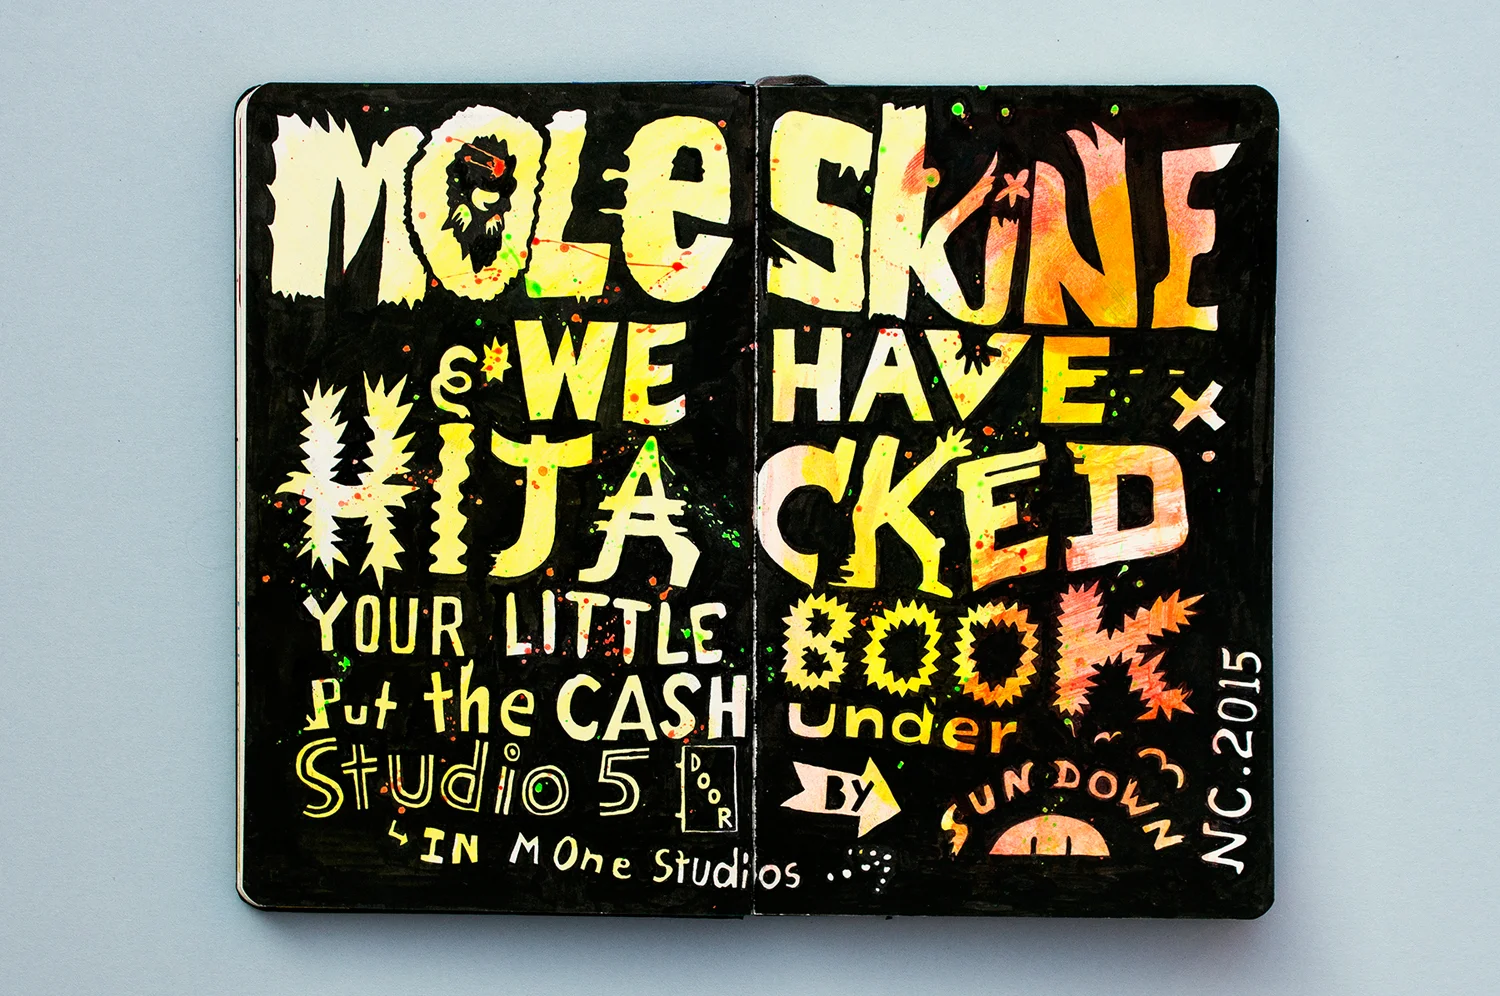 MOLESKINE
& WE HAVE
HIJACKED
YOUR LITTLE BOOK
Put the CASH under
Studio 5 DOOR BY SUNDOWN
IN MOne Studios
NC.2015